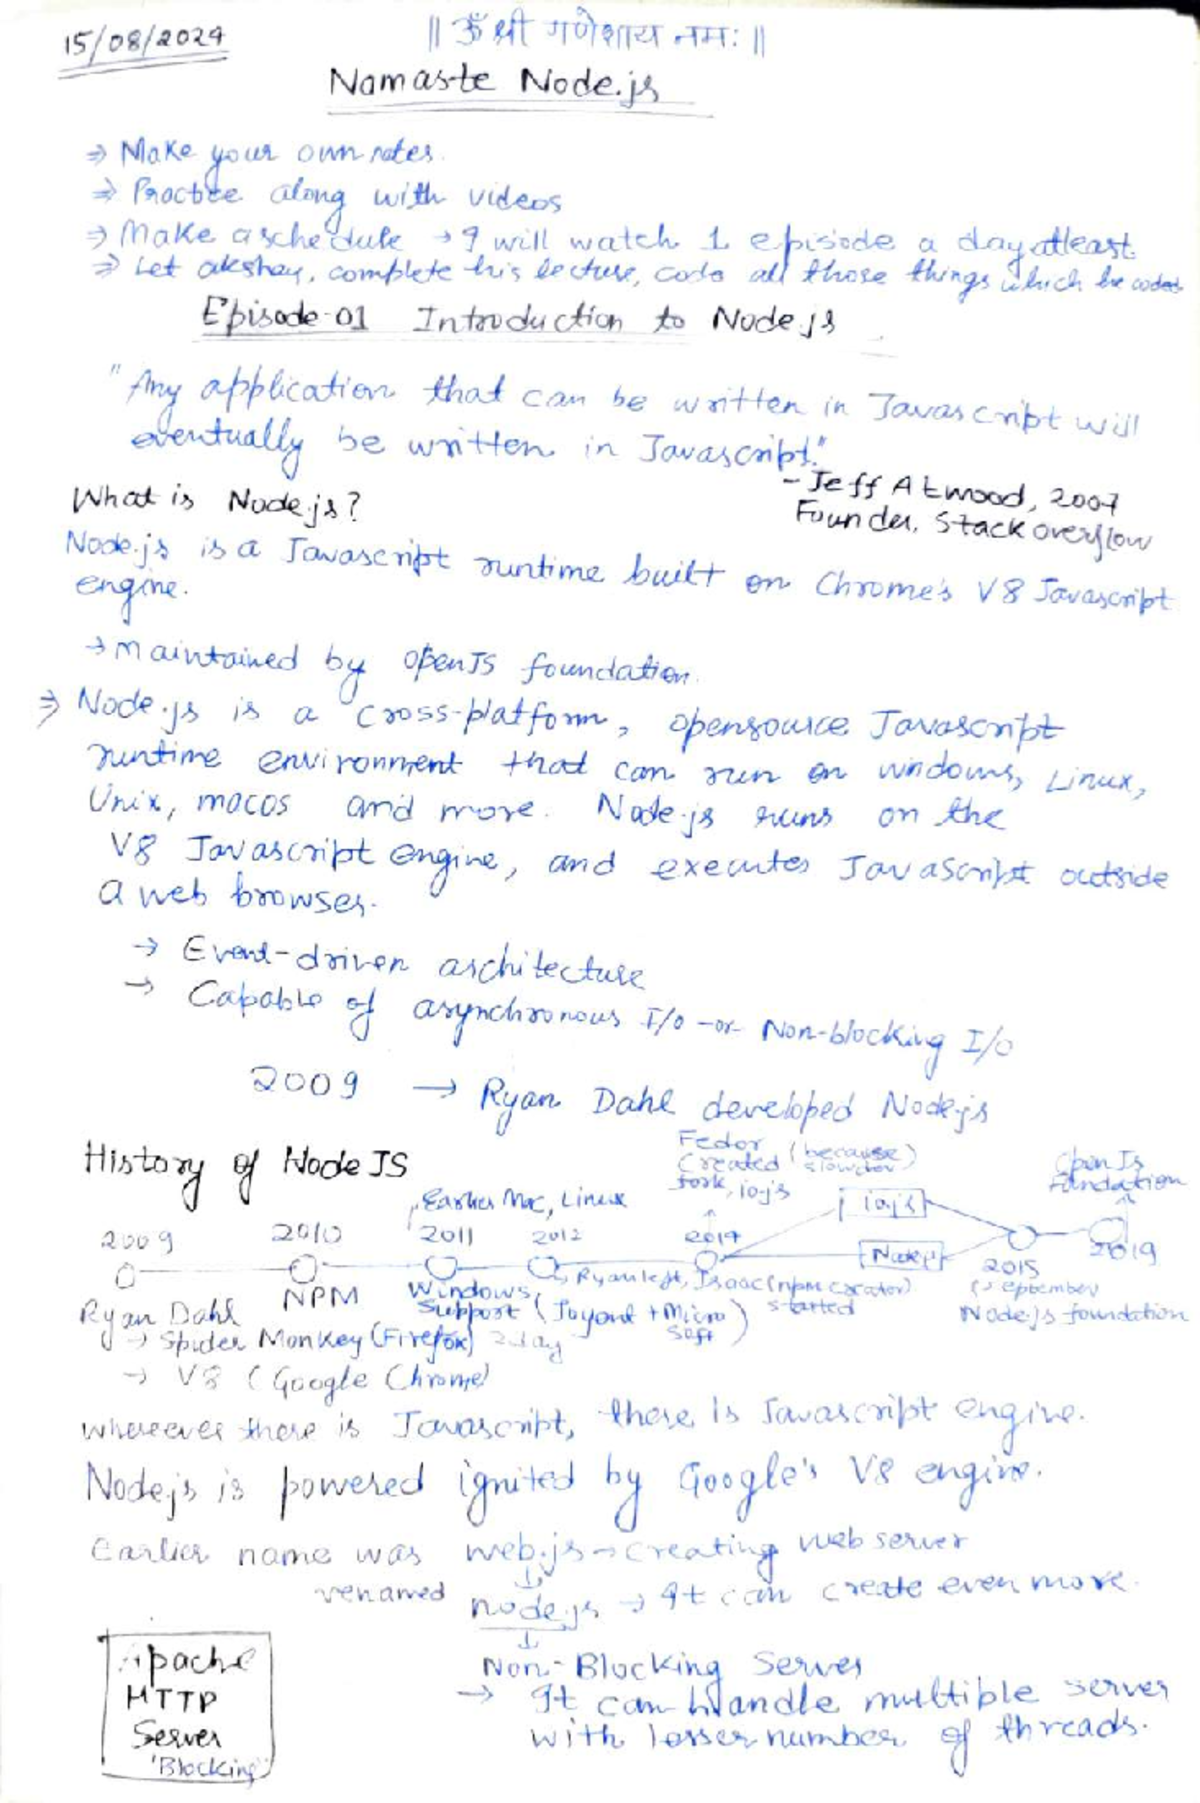 15/08/2024
|| ॐ श्री गणेशाय नमः ||
Namaste Node.js
⇒ Make your own notes.
⇒ Practice along with videos
⇒ Make a schedule → I will watch 1 episode a day atleast
⇒ Let akshay, complete his lecture, code all those things which he coded
Episode-01 Introduction to Node js
"Any application that can be written in Javascript will
eventually be written in Javascript."
- Jeff Atwood, 2007
Founder, Stack overflow
What is Node.js?
Node.js is a Javascript runtime built on Chrome's V8 Javascript
engine.
→ maintained by openJS foundation.
⇒ Node.js is a cross-platform, opensource Javascript
runtime environment that can run on windows, Linux,
Unix, macos and more. Node.js runs on the
V8 Javascript engine, and executes JavaScript outside
a web browser.
→ Event-driven architecture
→ Capable of asynchronous I/O -or- Non-blocking I/O
2009 → Ryan Dahl developed Node.js
History of Node JS
Fedor (because slowdev)
Created
fork, io.js
Open Js
Foundation
Earlier Mac, Linux
io.js
2009 2010 2011 2012 2014
Node.js
2015 2019
Ryan Dahl
NPM
Windows
Support (Joyent + Microsoft)
Ryan left, Isaac (npm creator)
started
(September
Node.js foundation
→ Spider Monkey (Firefox) 2 day
→ V8 (Google Chrome)
whereever there is Javascript, there is Javascript engine.
Node.js is powered ignited by Google's V8 engine.
Earlier name was web.js → creating web server
↓
renamed node.js → It can create even more.
↓
Non-Blocking Server
→ It can handle multiple server
with lesser number of threads.
Apache
HTTP
Server
'Blocking'